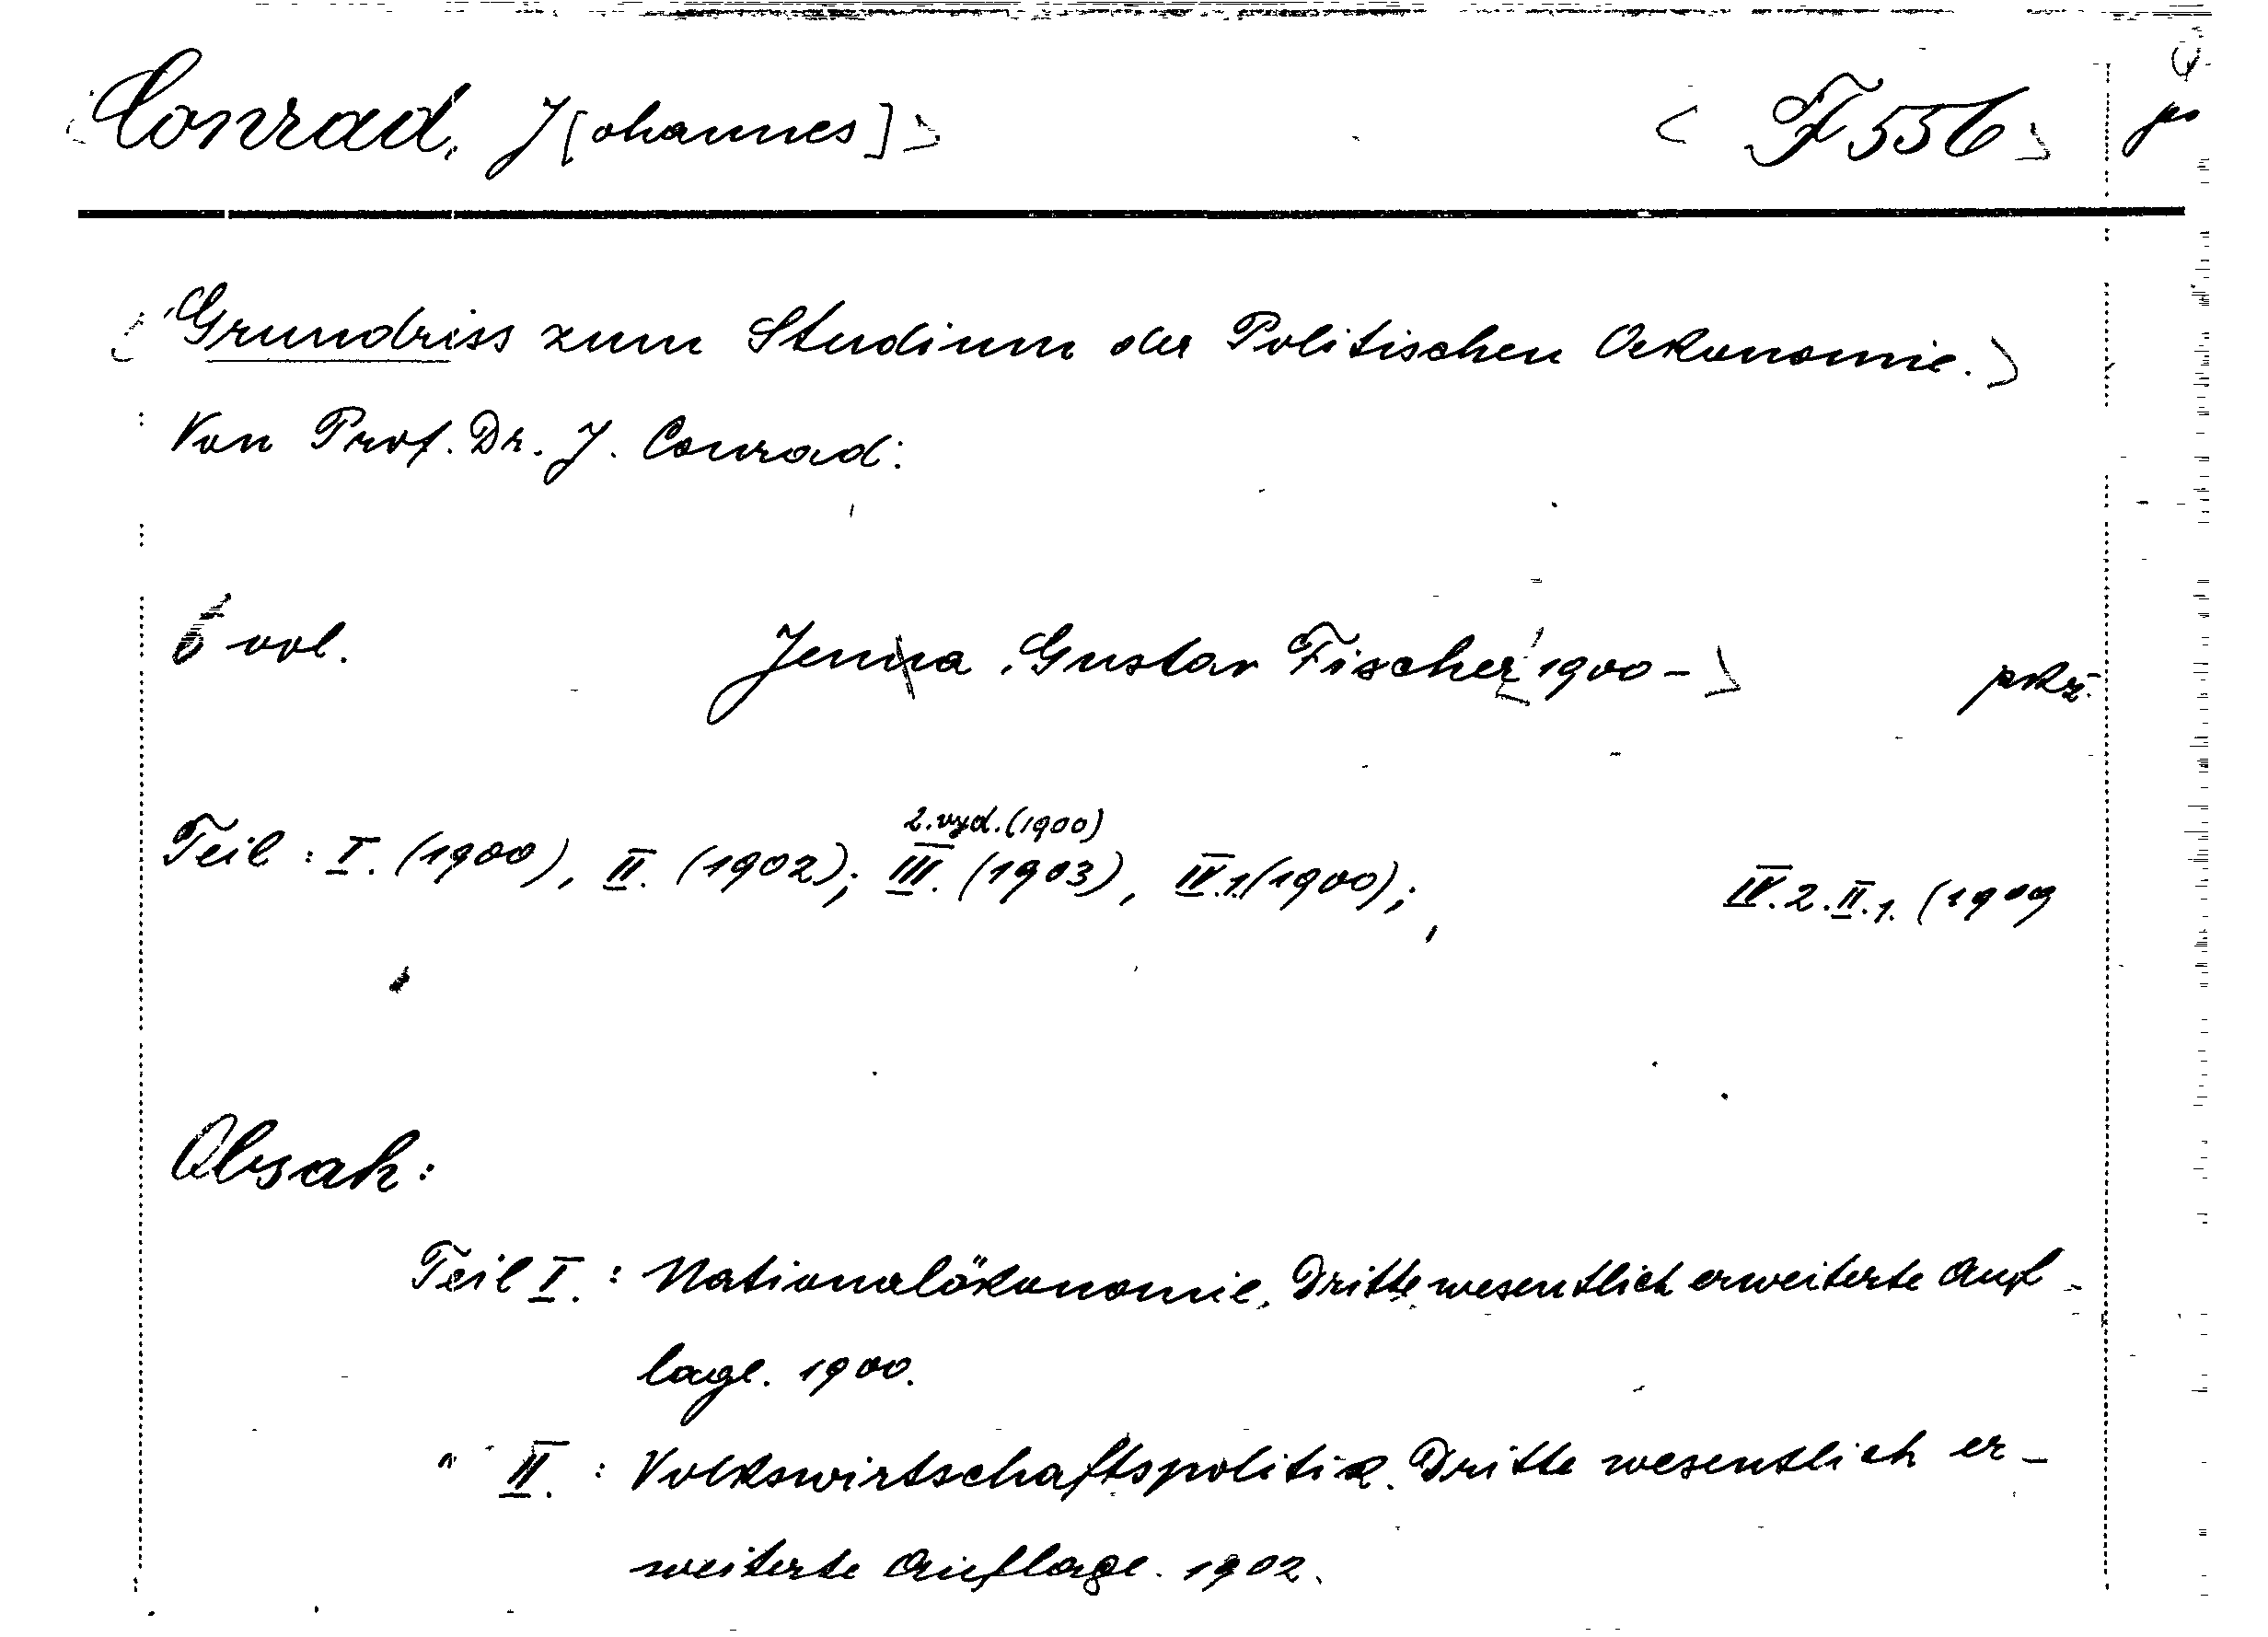 Conrad, J[ohannes] > < F 556 >
Grundriss zum Studium der Politischen Oekonomie. >
Von Prof. Dr. J. Conrad.
vol. Jenna, Gustav Fischer 1900 - >
2. vyd. (1900)
Teil : I. (1900), II. (1902); III. (1903), IV.1. (1900); IV.2.II.1. (1909
Obsah :
Teil I. : Nationalökonomie. Dritte wesentlich erweiterte Auf-
lage. 1900.
" II. : Volkswirtschaftspolitik. Dritte wesentlich er-
weiterte Auflage. 1902.